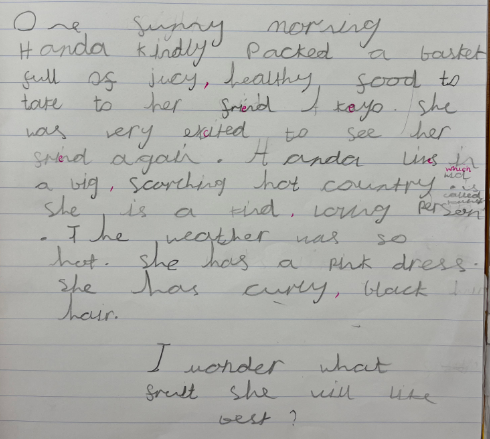 One sunny morning
Handa kindly Packed a basket
full of jucy, healthy food to
take to her frend Akeyo. She
was very exited to see her
frend again. Handa lives in
a big, scorching hot country which is
called
She is a kind, loving person
. The weather was so
hot. She has a pink dress.
She has curly, black
hair.
I wonder what
fruit she will like
best?